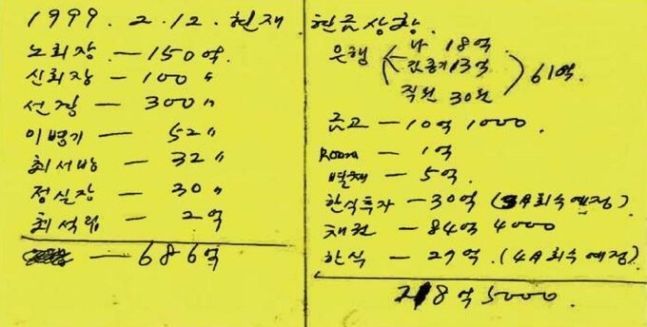 1999. 2. 12. 현재
노회장 — 150억.
신회장 — 100 〃
선장 — 300 〃
이병기 — 52 〃
최서방 — 32 〃
정실장 — 30 〃
최석림 — 2억
— 686억
현금상황.
은행 나 18억.
13억 61억.
직원 30억
금고 — 10억 1000.
Room — 1억
별채 — 5억.
한식투자 — 30억 (3月회수예정)
채권 — 84억 4000
한식 — 27억. (4月회수예정)
218억 5000.